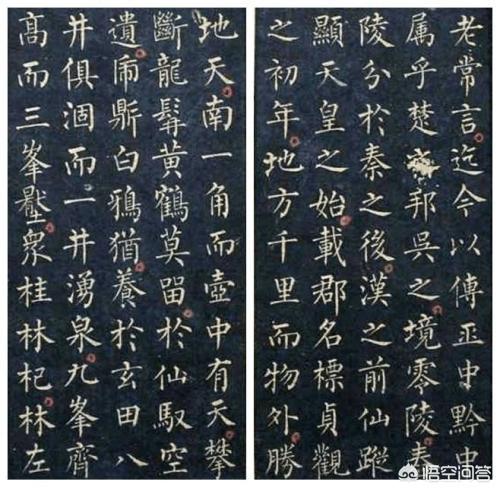 老常言迄今以傳中黔中
属乎楚邦吳之境零陵舂
陵分於秦之後漢之前仙蹤
顯天皇之始載郡名標貞觀
之初年地方千里而物外勝
地天南一角而壺中有天攀
斷龍髯黃鶴莫留於仙馭空
遺鼎白鴉猶養於玄田八
井俱涸而一井湧泉九峯齊
髙而三峯壓眾桂林杞林左
悟空问答